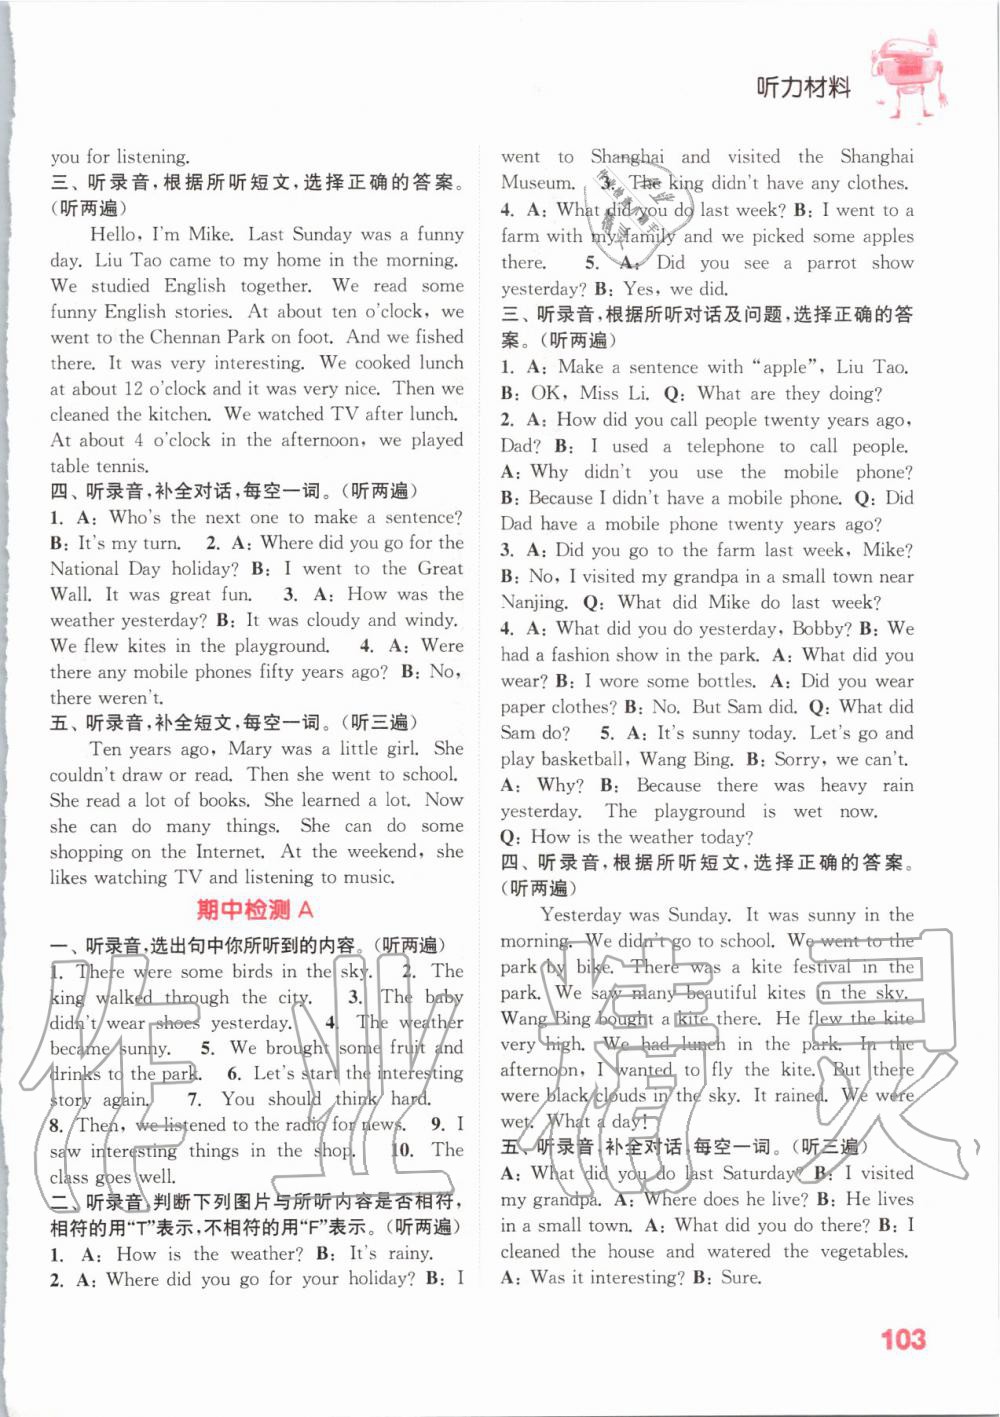 听力材料
you for listening.
三、听录音,根据所听短文,选择正确的答案。
(听两遍)
Hello, I'm Mike. Last Sunday was a funny
day. Liu Tao came to my home in the morning.
We studied English together. We read some
funny English stories. At about ten o'clock, we
went to the Chennan Park on foot. And we fished
there. It was very interesting. We cooked lunch
at about 12 o'clock and it was very nice. Then we
cleaned the kitchen. We watched TV after lunch.
At about 4 o'clock in the afternoon, we played
table tennis.
四、听录音,补全对话,每空一词。(听两遍)
1. A: Who's the next one to make a sentence?
B: It's my turn. 2. A: Where did you go for the
National Day holiday? B: I went to the Great
Wall. It was great fun. 3. A: How was the
weather yesterday? B: It was cloudy and windy.
We flew kites in the playground. 4. A: Were
there any mobile phones fifty years ago? B: No,
there weren't.
五、听录音,补全短文,每空一词。(听三遍)
Ten years ago, Mary was a little girl. She
couldn't draw or read. Then she went to school.
She read a lot of books. She learned a lot. Now
she can do many things. She can do some
shopping on the Internet. At the weekend, she
likes watching TV and listening to music.
期中检测 A
一、听录音,选出句中你所听到的内容。(听两遍)
1. There were some birds in the sky. 2. The
king walked through the city. 3. The baby
didn't wear shoes yesterday. 4. The weather
became sunny. 5. We brought some fruit and
drinks to the park. 6. Let's start the interesting
story again. 7. You should think hard.
8. Then, we listened to the radio for news. 9. I
saw interesting things in the shop. 10. The
class goes well.
二、听录音,判断下列图片与所听内容是否相符,
相符的用“T”表示,不相符的用“F”表示。(听两遍)
1. A: How is the weather? B: It's rainy.
2. A: Where did you go for your holiday? B: I
went to Shanghai and visited the Shanghai
Museum. 3. The king didn't have any clothes.
4. A: What did you do last week? B: I went to a
farm with my family and we picked some apples
there. 5. A: Did you see a parrot show
yesterday? B: Yes, we did.
三、听录音,根据所听对话及问题,选择正确的答
案。(听两遍)
1. A: Make a sentence with “apple”, Liu Tao.
B: OK, Miss Li. Q: What are they doing?
2. A: How did you call people twenty years ago,
Dad? B: I used a telephone to call people.
A: Why didn't you use the mobile phone?
B: Because I didn't have a mobile phone. Q: Did
Dad have a mobile phone twenty years ago?
3. A: Did you go to the farm last week, Mike?
B: No, I visited my grandpa in a small town near
Nanjing. Q: What did Mike do last week?
4. A: What did you do yesterday, Bobby? B: We
had a fashion show in the park. A: What did you
wear? B: I wore some bottles. A: Did you wear
paper clothes? B: No. But Sam did. Q: What did
Sam do? 5. A: It's sunny today. Let's go and
play basketball, Wang Bing. B: Sorry, we can't.
A: Why? B: Because there was heavy rain
yesterday. The playground is wet now.
Q: How is the weather today?
四、听录音,根据所听短文,选择正确的答案。
(听两遍)
Yesterday was Sunday. It was sunny in the
morning. We didn't go to school. We went to the
park by bike. There was a kite festival in the
park. We saw many beautiful kites in the sky.
Wang Bing bought a kite there. He flew the kite
very high. We had lunch in the park. In the
afternoon, I wanted to fly the kite. But there
were black clouds in the sky. It rained. We were
wet. What a day!
五、听录音,补全对话,每空一词。(听三遍)
A: What did you do last Saturday? B: I visited
my grandpa. A: Where does he live? B: He lives
in a small town. A: What did you do there? B: I
cleaned the house and watered the vegetables.
A: Was it interesting? B: Sure.
103
作业精灵